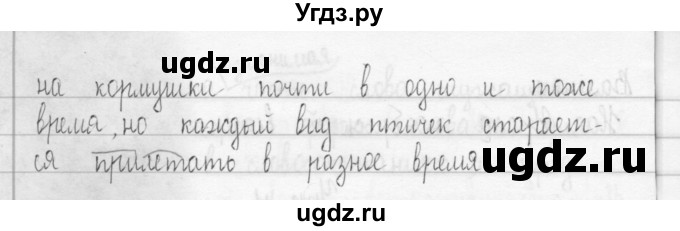 Угдз.ру
на кормушки почти в одно и тоже
время, но каждый вид птичек старает-
ся прилетать в разное время
ugdz.ru
ugdz.ru
ugdz.ru
ugdz.ru